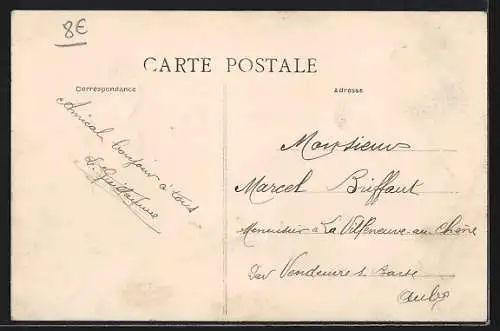 8€
CARTE POSTALE
Correspondance
Adresse
Amical bonjour à tous
L. Guillaume
Monsieur
Marcel Briffaut
Menuisier à La Villeneuve-au-Chêne
par Vendeuvre s. Barse
Aube